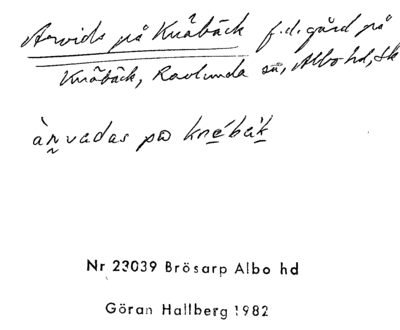 Arvids på Knäbäck f.d. gård på
Knäbäck, Ravlunda sn, Albo hd, Sk
àn̰vadas pɷ knébàk
Nr 23039 Brösarp Albo hd
Göran Hallberg 1982